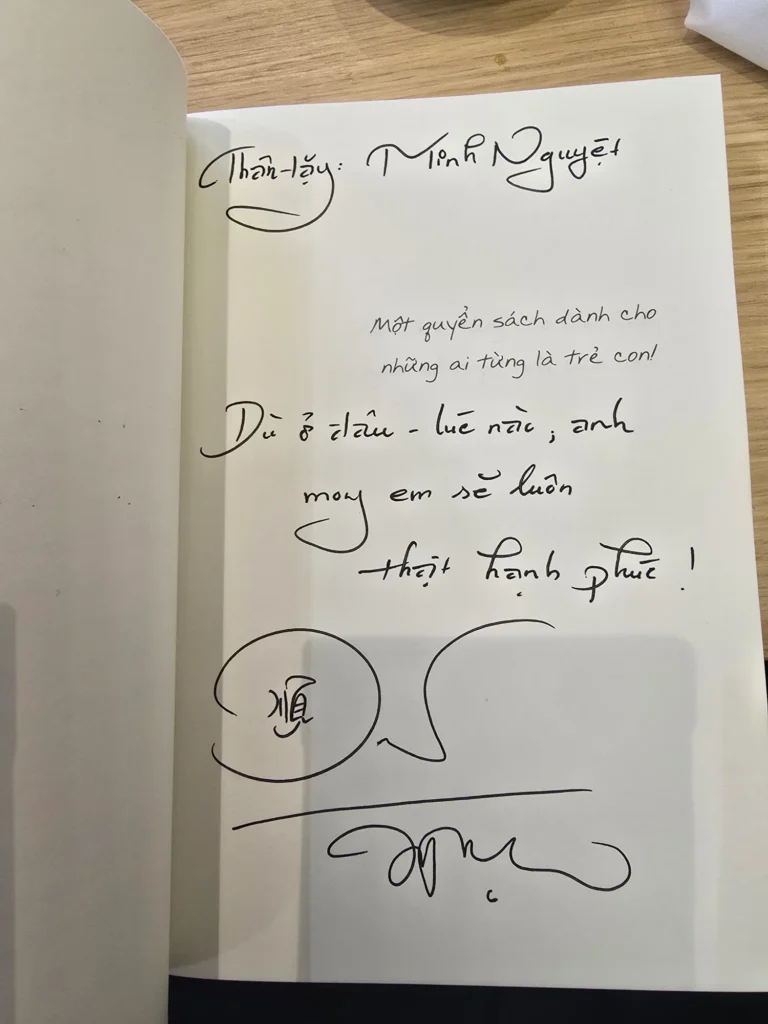 Thân-tặng: Minh Nguyệt
Một quyển sách dành cho
những ai từng là trẻ con!
Dù ở đâu - lúc nào, anh
mong em sẽ luôn
thật hạnh phúc!
順